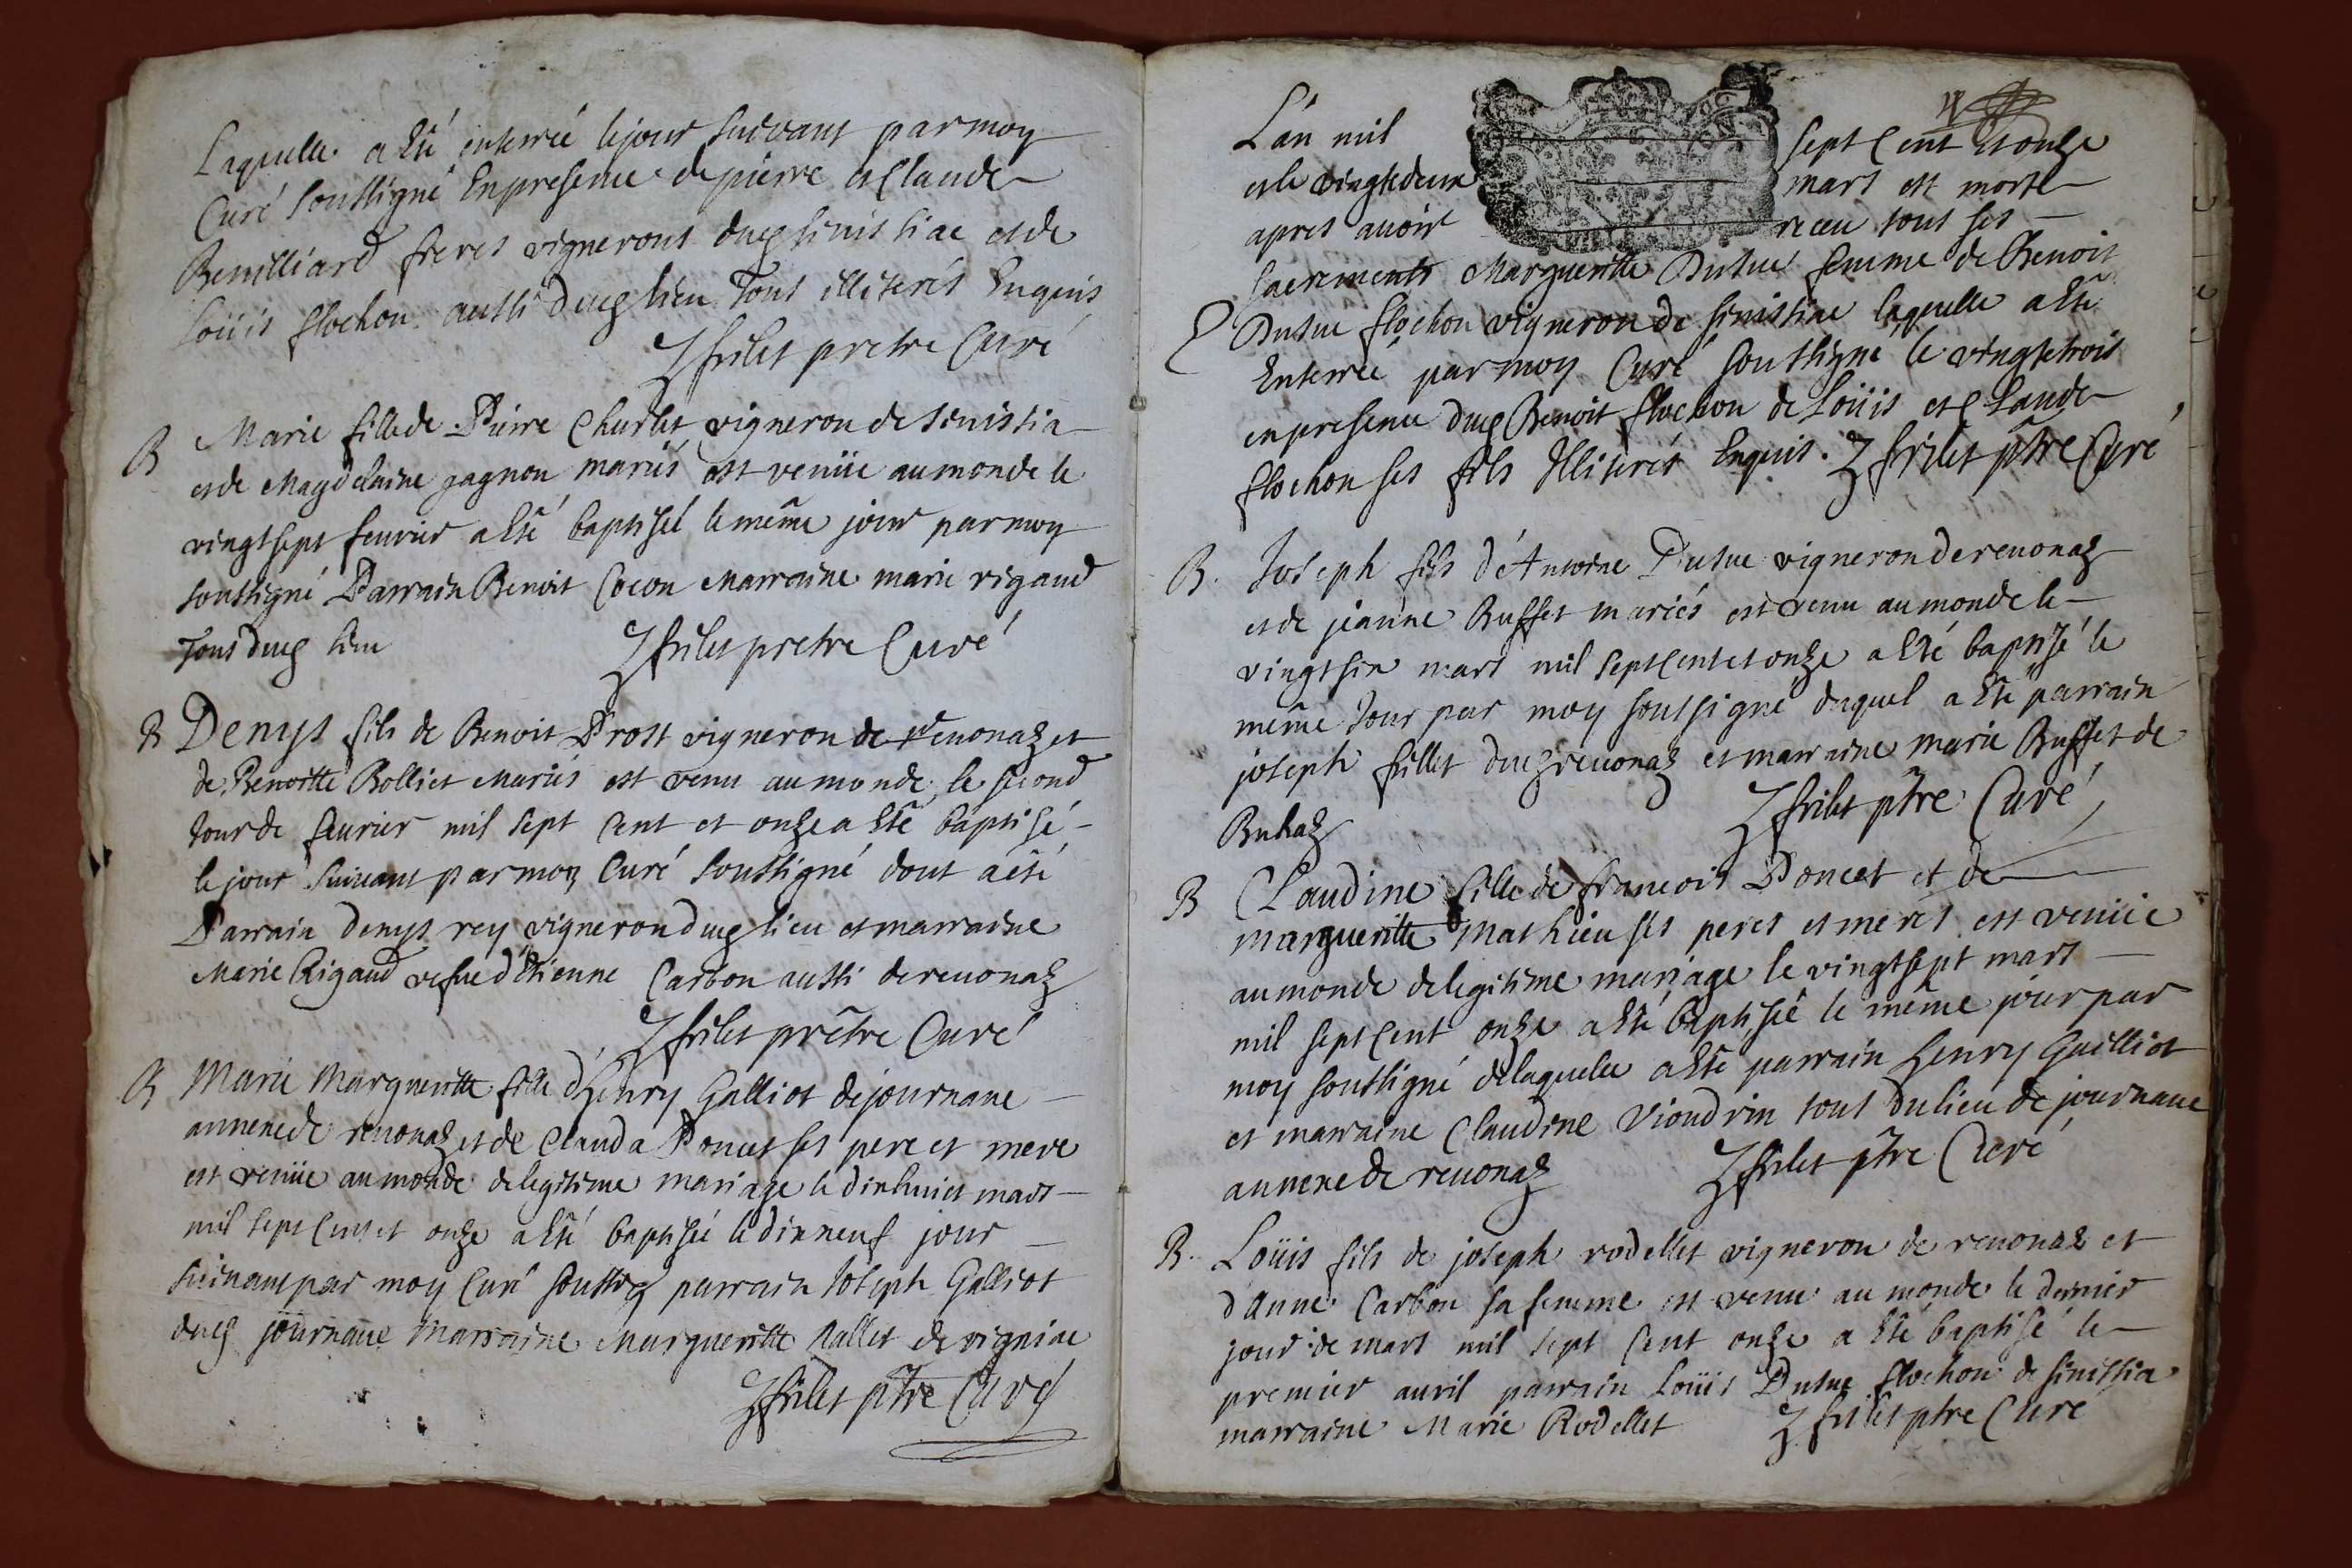 Laquelle a Esté enterreé le jour suivant par moy
Curé soussigné En presence de pierre et Claude
Bevilliard freres vignerons dueg sinissiac et de
Loüis flochon aussi dueg lieu Tous illiterés Enquis
Z frilet pretre Curé
B Marie fille de Pierre Churlet vigneron de sinissia
et de Magdelaine gagnon mariés est venüe au monde le
vingt sept feuvrier a Esté baptiseé le même jour par moy
soussigné Parrain Benoit Cocon Marraine marie rigaud
Tous dueg lieu Z frilet pretre Curé
B Denys fils de Benoit Prost vigneron de reuonaz et
de Benoitte Bolliet Mariés est venu au monde le second
Jour de feurier mil sept cent et onze a Esté baptisé
le jour suiuant par moy Curé soussigné dont a été
Parrain denys rey vigneron dueg lieu et marraine
Marie Rigaud vefue d'Etienne Carbon aussi de reuonaz
Z frilet prêtre Curé
B Marie Margueritte fille d'henry Galliot de journane
annexe de reuonaz et de Clauda Poncet ses pere et mere
est venüe au monde de legitime mariage le dixhuict mars
mil sept Cent et onze a Esté baptiseé le dixneuf jour
suiuant par moy Curé soussig parrain Joseph Galliot
dueg journane Marraine Marguerite Vallet de vigniae
Z frilet ptre Curé
L'an mil sept Cent et onze
et le vingt deux mars est morte
apres auoir receu tous ses
sacrements Marguerite Dutue femme de Benoit
Dutue flochon vigneron de sinissiae laquelle a Esté
Enterreé par moy Curé soussigné le vingt et trois
en presence dueg Benoit flochon de Loüis et Claude
flochon ses fils Illiterés Enquis. Z frilet ptre Curé
B. Joseph fils d'Antoine Dutue vigneron de reuonaz
et de jeanne Buffet mariés est venu au monde le
vingt six mars mil sept Cent et onze a Esté baptisé le
même Jour par moy soussigné duquel a Esté parrain
joseph fillet dueg reuonaz et marraine marie Buffet de
Buhaz Z frilet ptre Curé
B Claudine fille de francois Poncet et de
Marguerite Mathieu ses peres et meres est venüe
au monde de legitime mariage le vingt sept mars
mil sept Cent onze a Esté baptiseé le même jour par
moy soussigné de laquelle a Esté parrain henry Guilliot
et marraine Claudine Viondrin tous du lieu de journane
annexe de reuonaz Z frilet ptre Curé
B. Loüis fils de joseph rodellet vigneron de reuonaz et
d'anne Carbon sa femme est venu au monde le dernier
jour de mars mil sept Cent onze a Esté baptisé le
premier auril parrain Loüis Dutue flochon de sinissia
marraine Marie Rodellet Z frilet ptre Curé